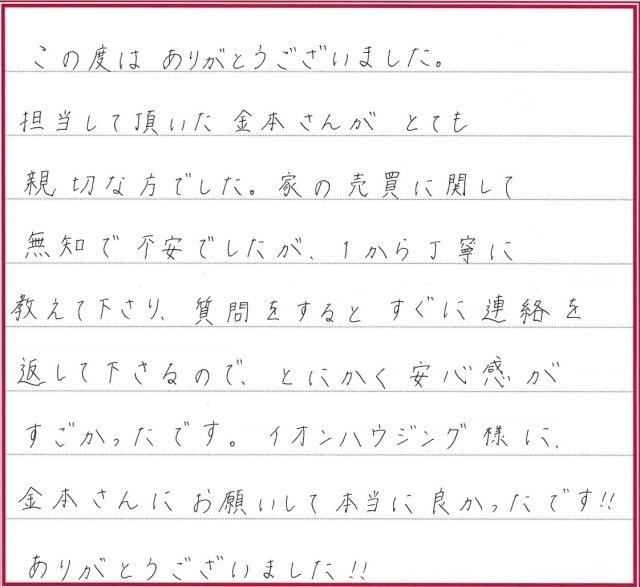 この度は ありがとうございました。
担当して頂いた 金本さんが とても
親切な方でした。家の売買に関して
無知で不安でしたが、1から丁寧に
教えて下さり、質問をすると すぐに連絡を
返して下さるので、とにかく安心感が
すごかったです。イオンハウジング様に、
金本さんにお願いして本当に良かったです!!
ありがとうございました!!